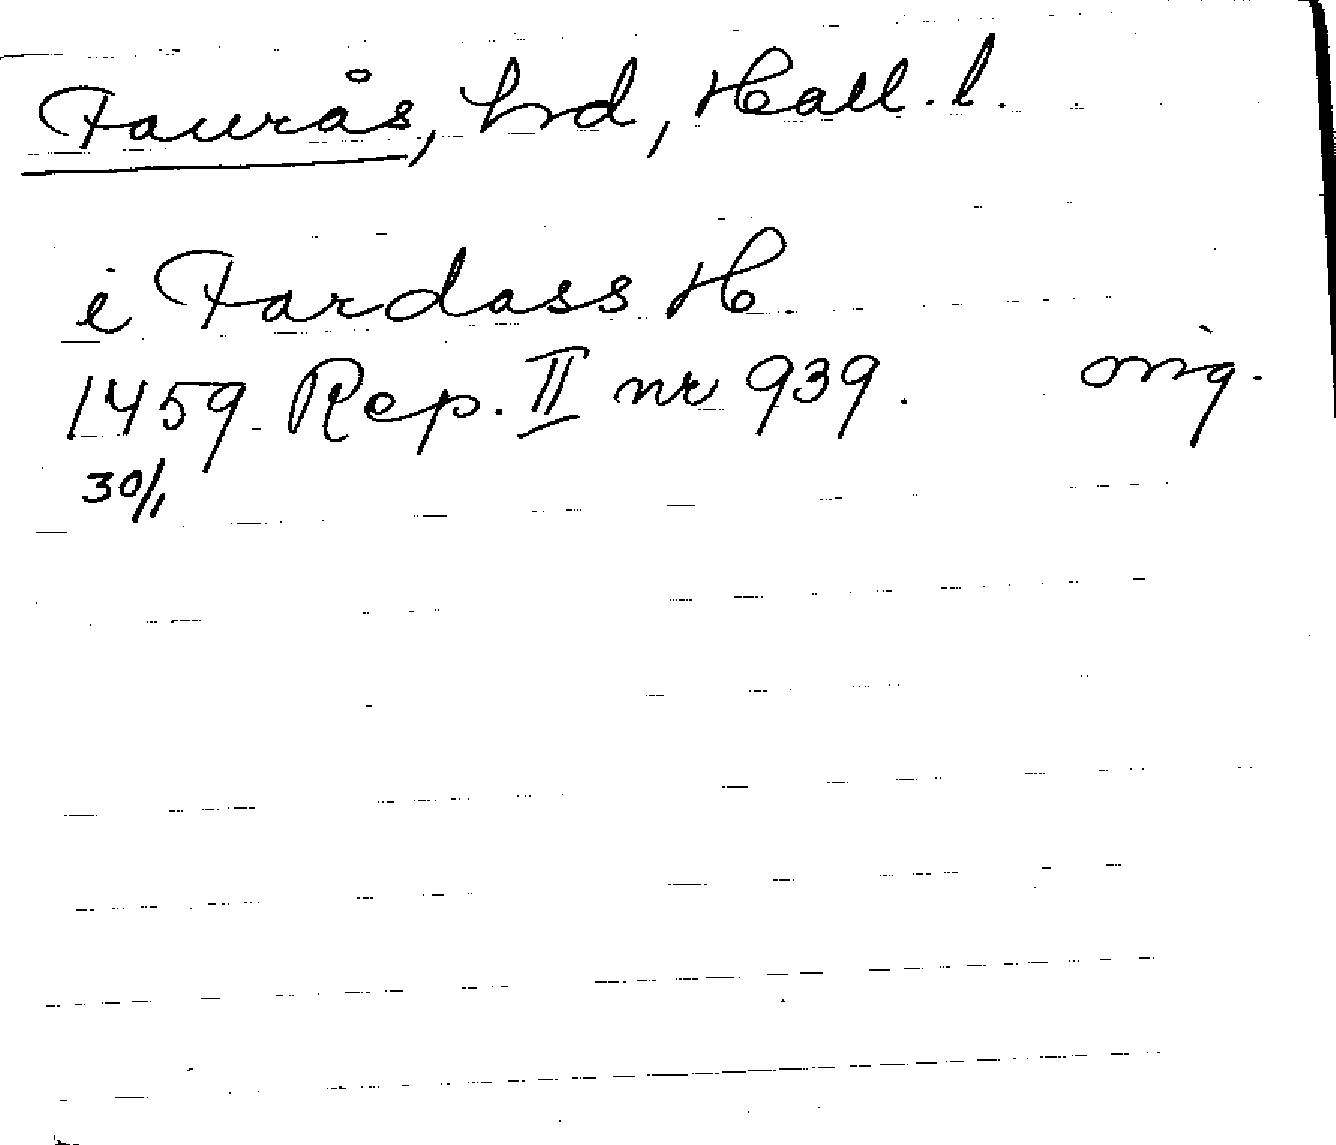 Faurås, hd, Hall. l.
i Fardass H.
1459 Rep. II nr 939. orig.
30/1